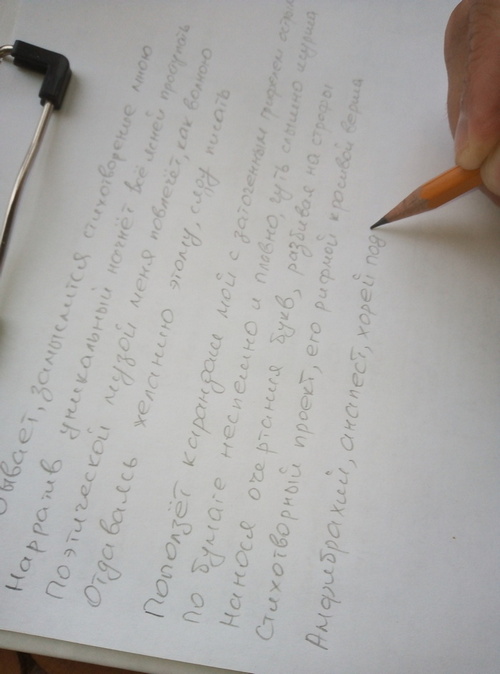 Бывает, замыслится стихотворение мною
Нарратив уникальный начнёт всё ясней проступать
Поэтической музой меня повлечёт, как волною
Отдаваясь желанию этому, сяду писать
Поползёт карандаш мой с заточенным графитом
По бумаге неспешно и плавно, чуть слышно шурша
Нанося очертания букв, разбивая на строфы
Стихотворный проект, его рифмой красивой верша
Амфибрахий, анапест, хорей под